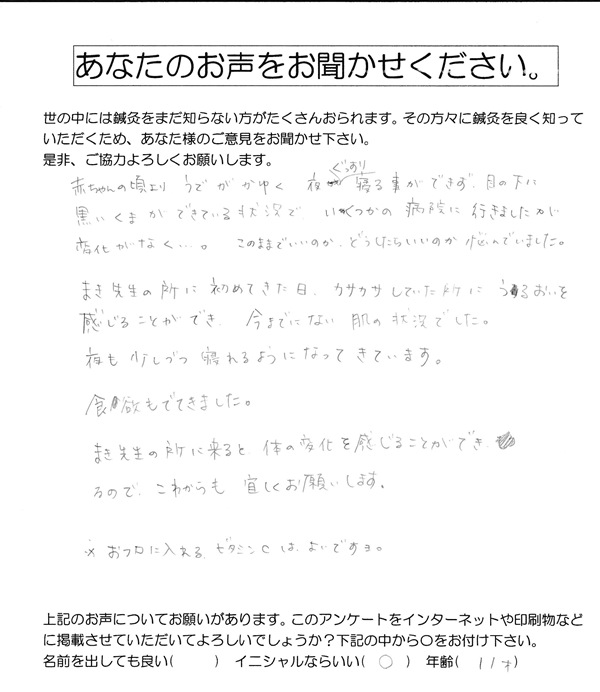 あなたのお声をお聞かせください。
世の中には鍼灸をまだ知らない方がたくさんおられます。その方々に鍼灸を良く知って
いただくため、あなた様のご意見をお聞かせ下さい。
是非、ご協力よろしくお願いします。
赤ちゃんの頃より うでがかゆく 夜 ぐっすり 寝る事ができず、目の下に
黒いくまができている状況で、いくつかの病院に行きましたが
変化がなく…。このままでいいのか、どうしたらいいのか 悩んでいました。
まき先生の所に初めてきた日、カサカサしていた所にうるおいを
感じることができ、今までにない肌の状況でした。
夜も少しづつ寝れるようになってきています。
食欲もでてきました。
まき先生の所に来ると、体の変化を感じることができ、
るので、これからも宜しくお願いします。
※ おフロに入れるビタミンCは、よいですヨ。
上記のお声についてお願いがあります。このアンケートをインターネットや印刷物など
に掲載させていただいてよろしいでしょうか？下記の中から○をお付け下さい。
名前を出しても良い(　　) イニシャルならいい( ○ ) 年齢( 11才)